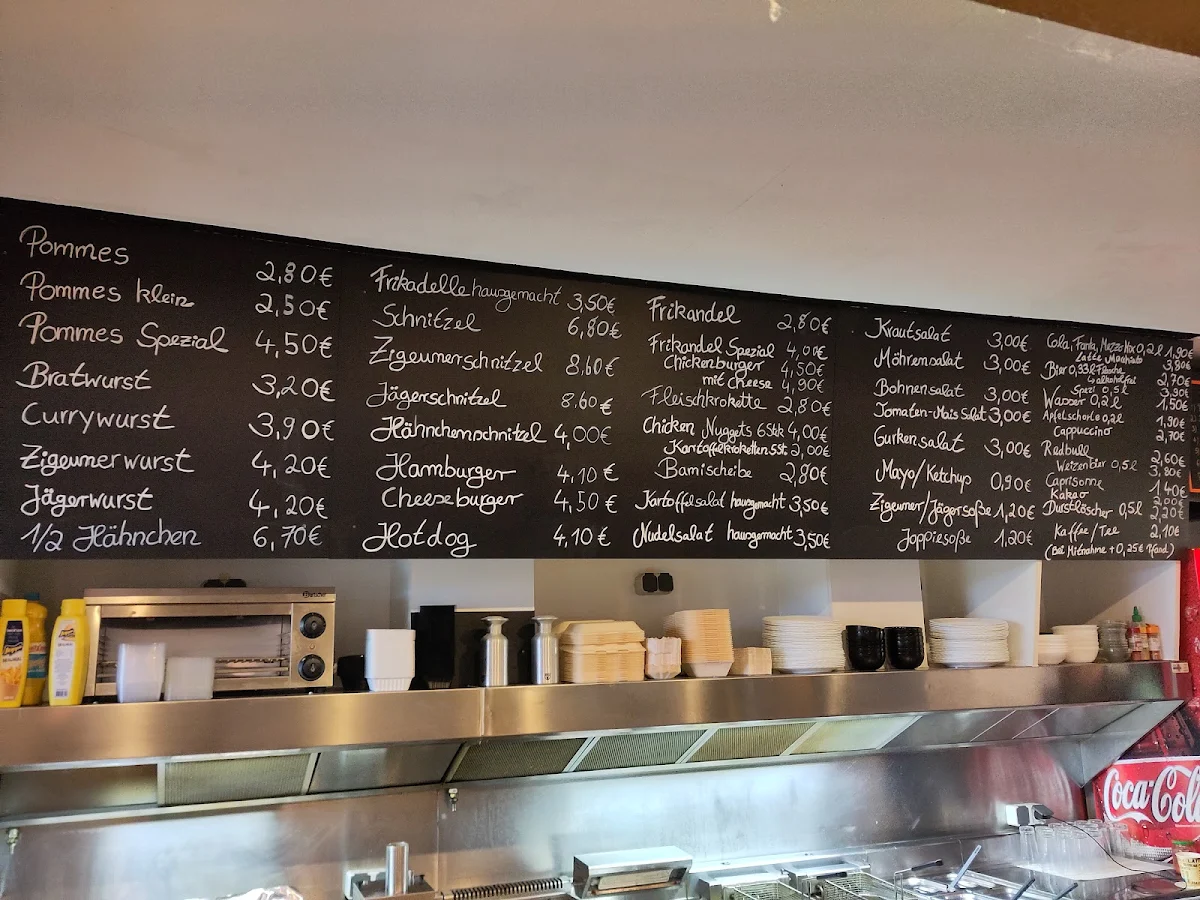 Pommes 2,80€
Pommes klein 2,50€
Pommes Spezial 4,50€
Bratwurst 3,20€
Currywurst 3,90€
Zigeunerwurst 4,20€
Jägerwurst 4,20€
1/2 Hähnchen 6,70€
Frikadelle hausgemacht 3,50€
Schnitzel 6,80€
Zigeunerschnitzel 8,60€
Jägerschnitzel 8,60€
Hähnchenschnitzel 4,00€
Hamburger 4,10€
Cheeseburger 4,50€
Hotdog 4,10€
Frikandel 2,80€
Frikandel Spezial 4,00€
Chickenburger 4,50€
mit cheese 4,90€
Fleischkrokette 2,80€
Chicken Nuggets 6Stk 4,00€
Kartoffelkroketten 5St 2,00€
Bamischeibe 2,80€
Kartoffelsalat hausgemacht 3,50€
Nudelsalat hausgemacht 3,50€
Krautsalat 3,00€
Möhrensalat 3,00€
Bohnensalat 3,00€
Tomaten-Mais Salat 3,00€
Gurkensalat 3,00€
Mayo/Ketchup 0,90€
Zigeuner/Jägersoße 1,20€
Joppiesoße 1,20€
Cola, Fanta, Mezzo Mix 0,2l 1,90€
Latte Machiato 3,80€
Bier 0,33l Flasche 2,70€
alkoholfrei
Spezi 0,5l 3,30€
Wasser 0,2l 1,50€
Apfelschorle 0,2l 1,90€
Cappuccino 2,70€
Redbull 2,60€
Weizenbier 0,5l 3,80€
Caprisonne 1,40€
Kakao 2,00€
Durstlöscher 0,5l 2,20€
Kaffee/Tee 2,10€
(Bei Mitnahme +0,25€ Pfand)
Coca-Col